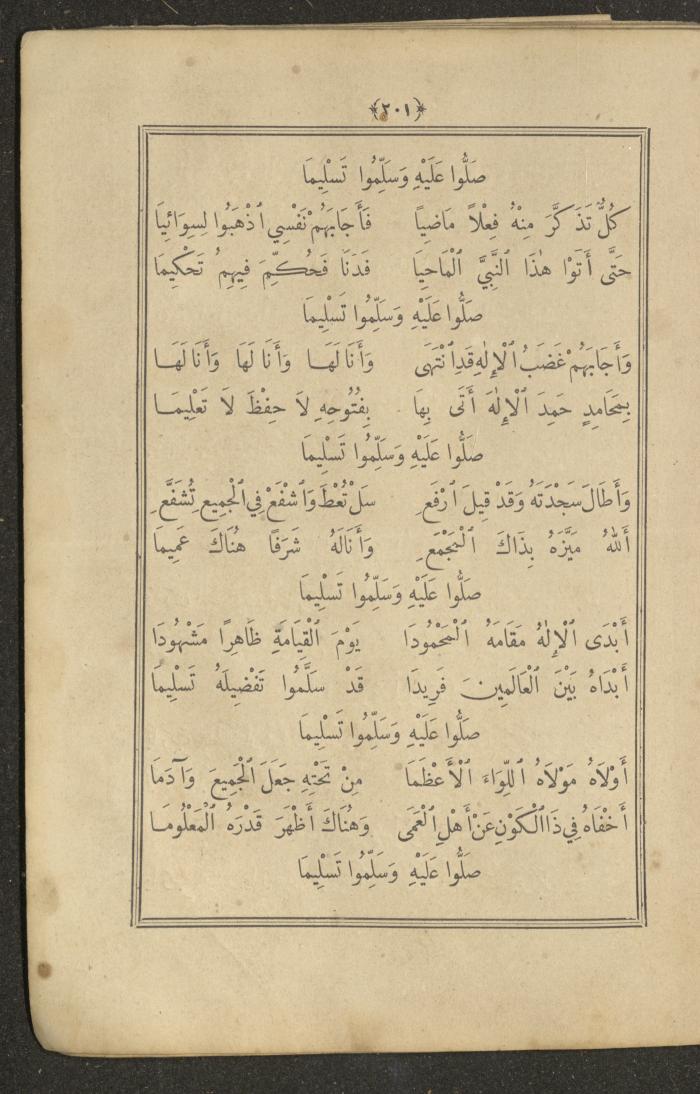 ﴿٢٠١﴾
صَلُّوا عَلَيْهِ وَسَلِّمُوا تَسْلِيمَا
كُلٌّ تَذَكَّرَ مِنْهُ فِعْلاً مَاضِيَا فَأَجَابَهُمْ نَفْسِي ٱذْهَبُوا لِسِوَائِيَا
حَتَّى أَتَوْا هٰذَا ٱلنَّبِيَّ ٱلْمَاحِيَا فَدَنَا فَحُكِّمَ فِيهِمُ تَحْكِيمَا
صَلُّوا عَلَيْهِ وَسَلِّمُوا تَسْلِيمَا
وَأَجَابَهُمْ غَضَبُ ٱلْإِلٰهِ قَدِ ٱنْتَهَى وَأَنَا لَهَا وَأَنَا لَهَا وَأَنَا لَهَا
بِمَحَامِدٍ حَمِدَ ٱلْإِلٰهَ أَتَى بِهَا بِفُتُوحِهِ لاَ حِفْظَ لاَ تَعْلِيمَا
صَلُّوا عَلَيْهِ وَسَلِّمُوا تَسْلِيمَا
وَأَطَالَ سَجْدَتَهُ وَقَدْ قِيلَ ٱرْفَعِ سَلْ تُعْطَ وَٱشْفَعْ فِي ٱلْجَمِيعِ تُشَفَّعِ
أَللهُ مَيَّزَهُ بِذَاكَ ٱلْمَجْمَعِ وَأَنَالَهُ شَرَفًا هُنَاكَ عَمِيمَا
صَلُّوا عَلَيْهِ وَسَلِّمُوا تَسْلِيمَا
أَبْدَى ٱلْإِلٰهُ مَقَامَهُ ٱلْمَحْمُودَا يَوْمَ ٱلْقِيَامَةِ ظَاهِرًا مَشْهُودَا
أَبْدَاهُ بَيْنَ ٱلْعَالَمِينَ فَرِيدَا قَدْ سَلَّمُوا تَفْضِيلَهُ تَسْلِيمَا
صَلُّوا عَلَيْهِ وَسَلِّمُوا تَسْلِيمَا
أَوْلاَهُ مَوْلاَهُ ٱللِّوَاءَ ٱلْأَعْظَمَا مِنْ تَحْتِهِ جَعَلَ ٱلْجَمِيعَ وَآدَمَا
أَخْفَاهُ فِي ذَا ٱلْكَوْنِ عَنْ أَهْلِ ٱلْعَمَى وَهُنَاكَ أَظْهَرَ قَدْرَهُ ٱلْمَعْلُومَا
صَلُّوا عَلَيْهِ وَسَلِّمُوا تَسْلِيمَا